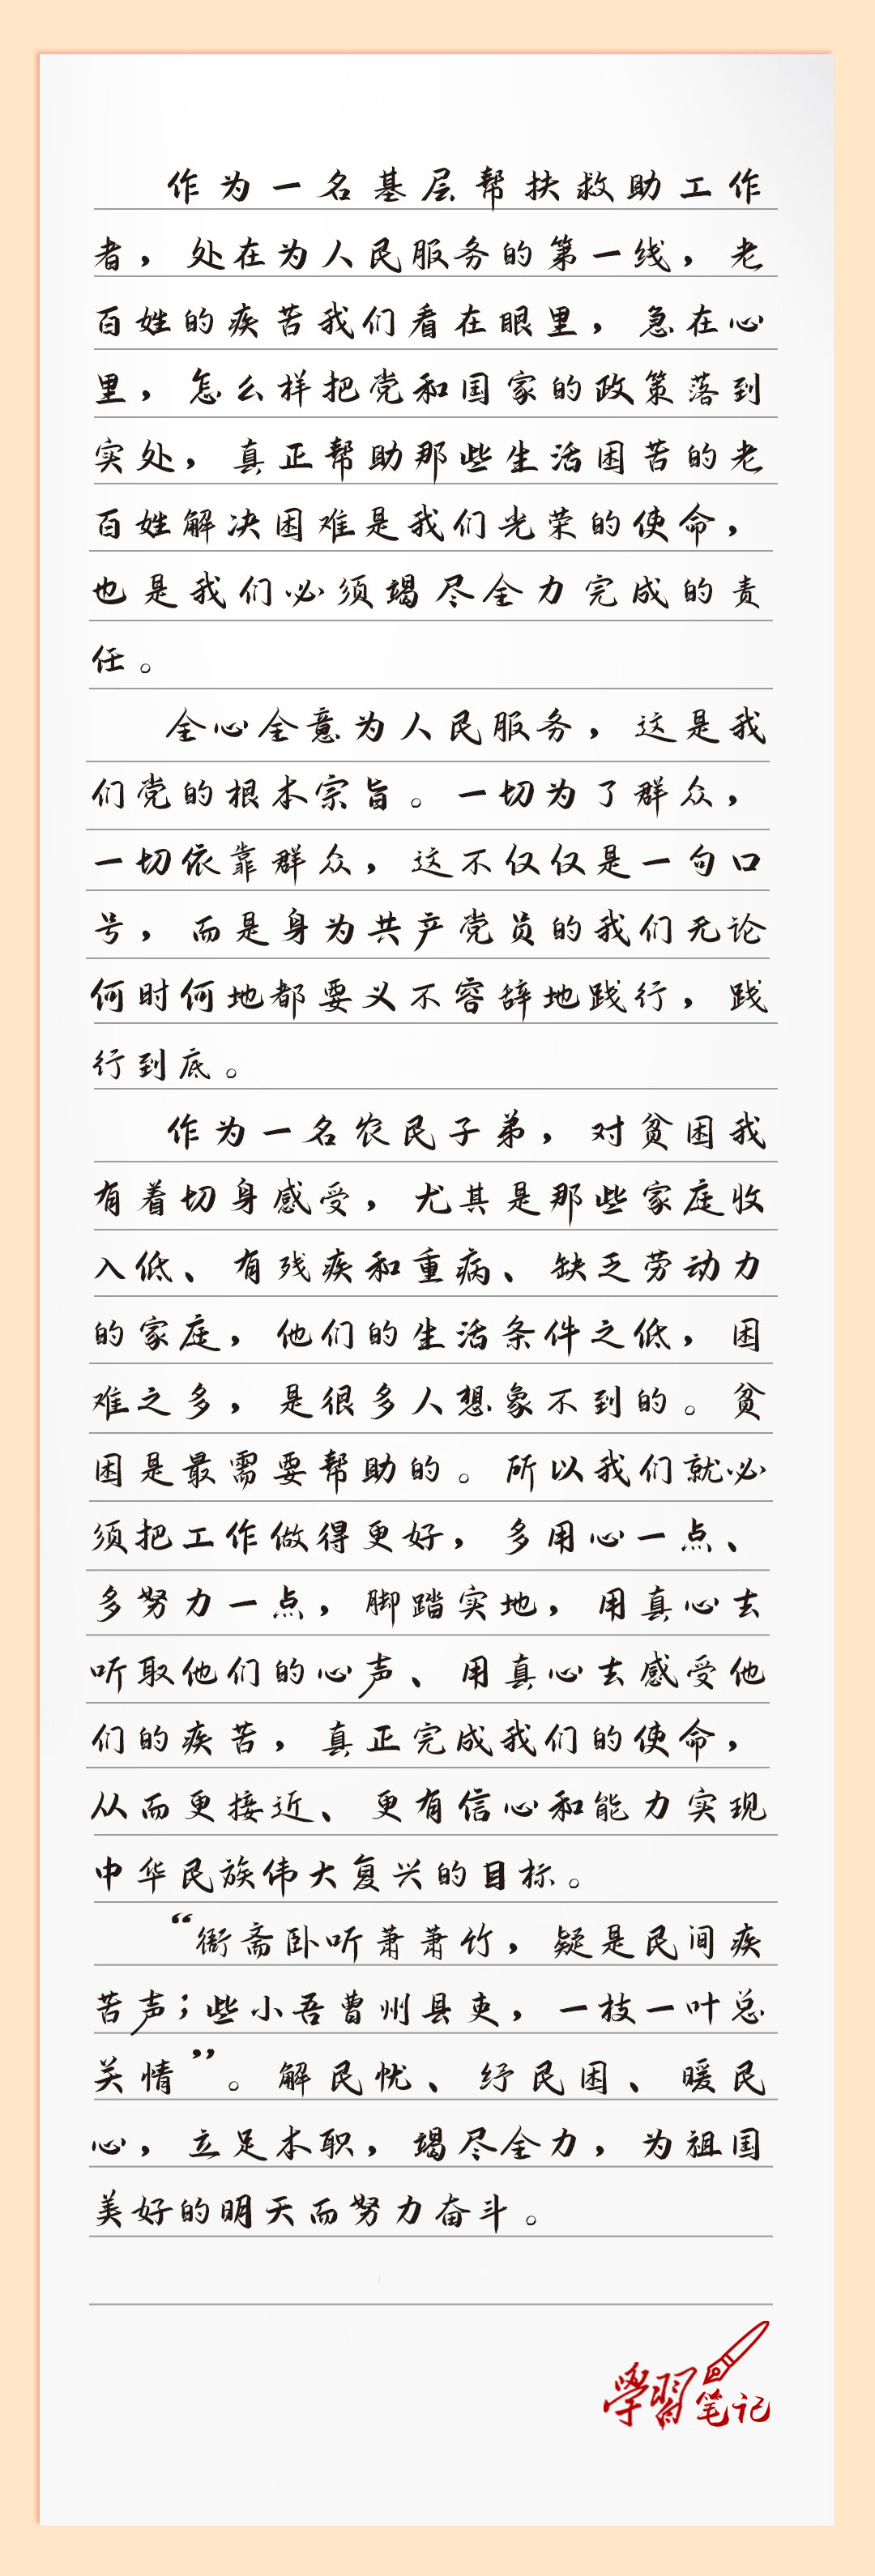 作为一名基层帮扶救助工作
者，处在为人民服务的第一线，老
百姓的疾苦我们看在眼里，急在心
里，怎么样把党和国家的政策落到
实处，真正帮助那些生活困苦的老
百姓解决困难是我们光荣的使命，
也是我们必须竭尽全力完成的责
任。
全心全意为人民服务，这是我
们党的根本宗旨。一切为了群众，
一切依靠群众，这不仅仅是一句口
号，而是身为共产党员的我们无论
何时何地都要义不容辞地践行，践
行到底。
作为一名农民子弟，对贫困我
有着切身感受，尤其是那些家庭收
入低、有残疾和重病、缺乏劳动力
的家庭，他们的生活条件之低，困
难之多，是很多人想象不到的。贫
困是最需要帮助的。所以我们就必
须把工作做得更好，多用心一点、
多努力一点，脚踏实地，用真心去
听取他们的心声、用真心去感受他
们的疾苦，真正完成我们的使命，
从而更接近、更有信心和能力实现
中华民族伟大复兴的目标。
“衙斋卧听萧萧竹，疑是民间疾
苦声；些小吾曹州县吏，一枝一叶总
关情”。解民忧、纾民困、暖民
心，立足本职，竭尽全力，为祖国
美好的明天而努力奋斗。
學習笔记